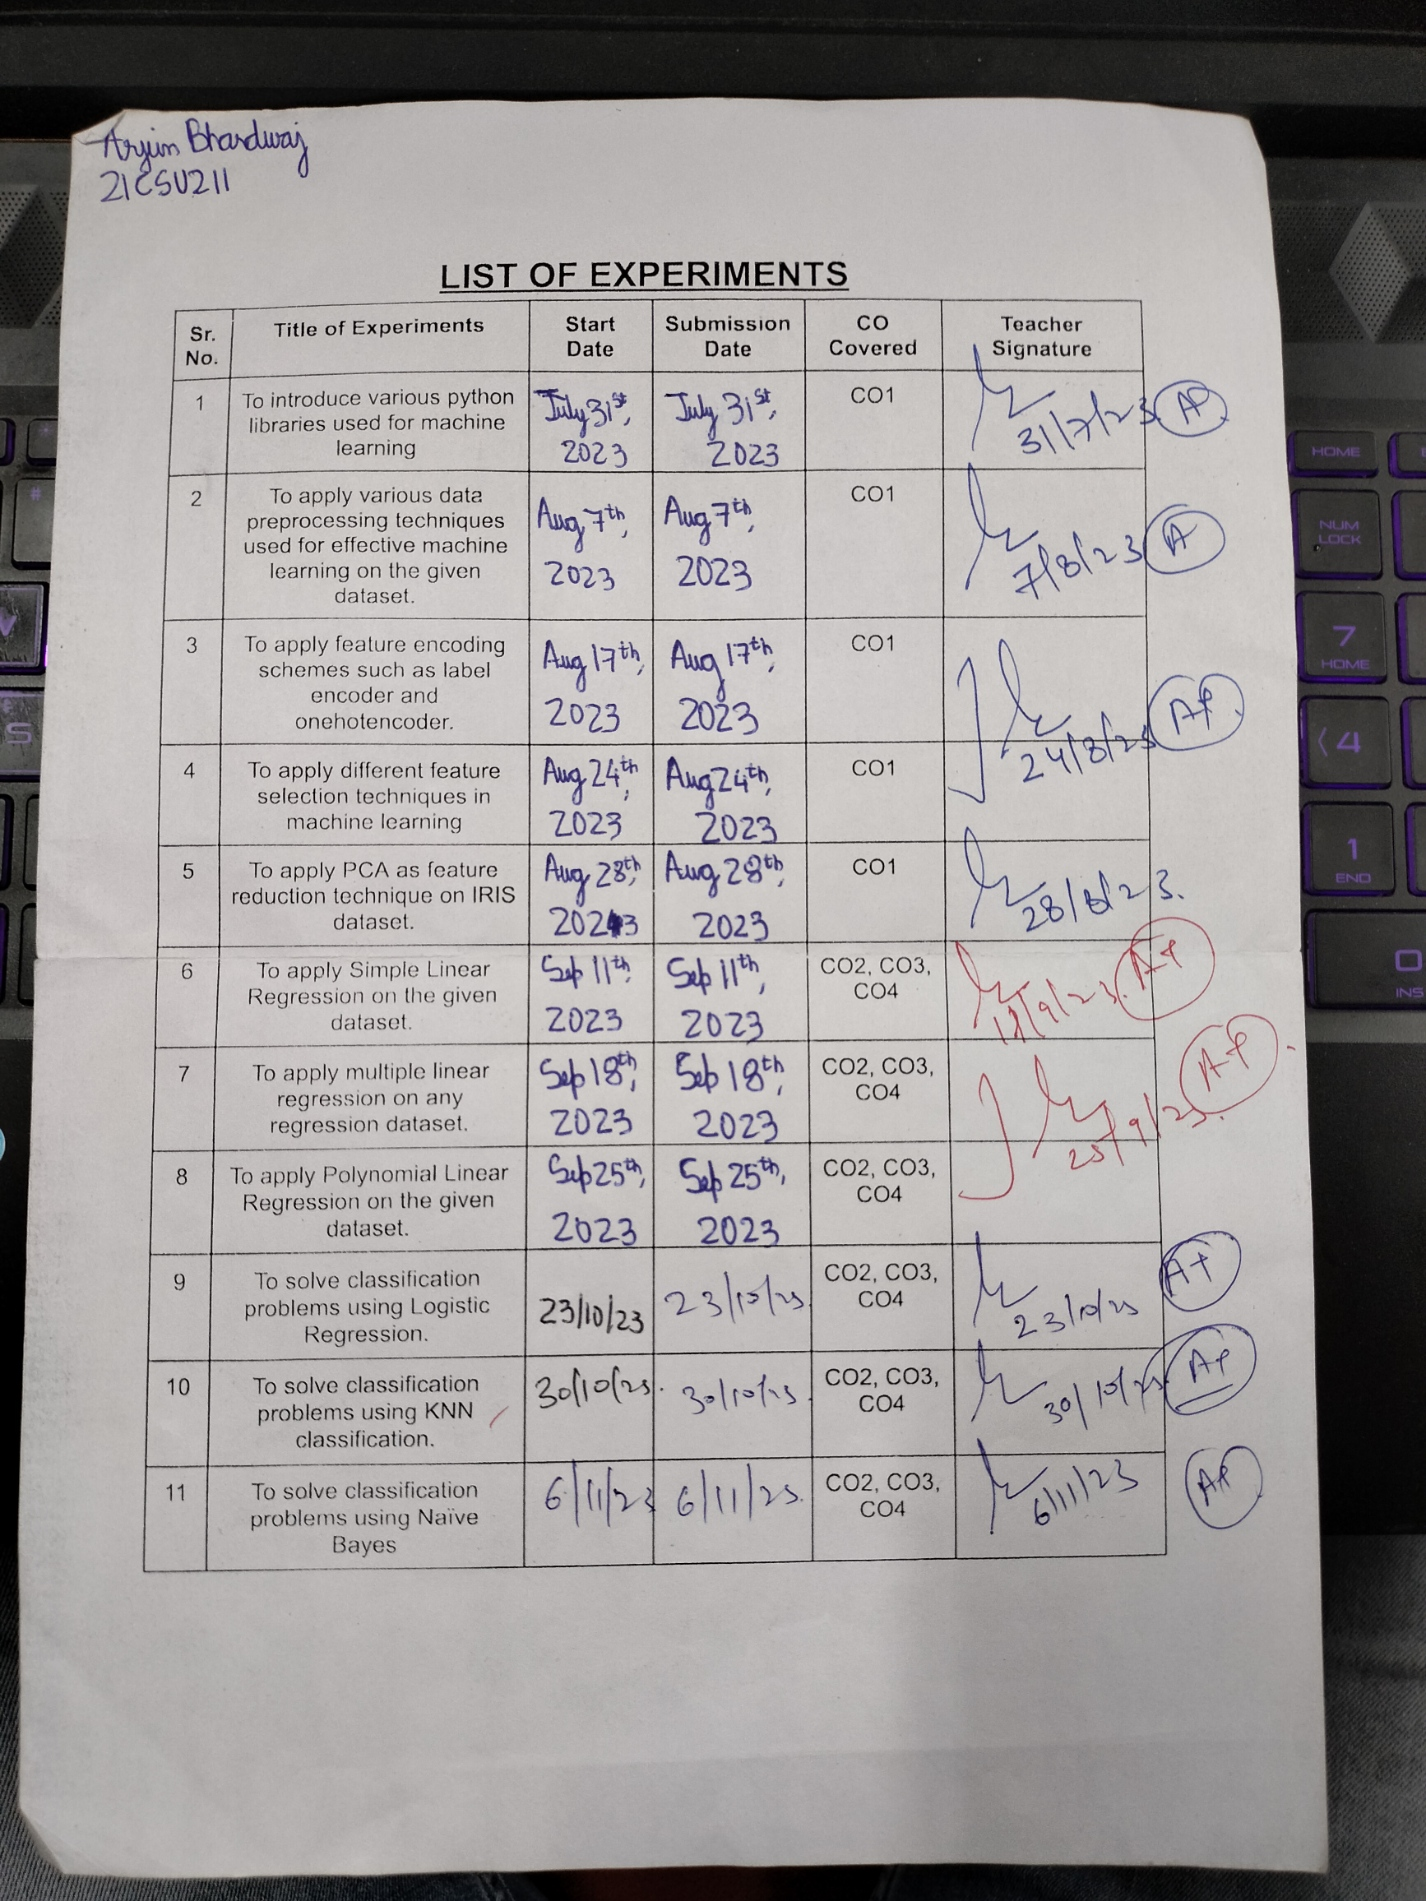 Arjun Bhardwaj
21CSU211
LIST OF EXPERIMENTS
Sr. No. Title of Experiments Start Date Submission Date CO Covered Teacher Signature
1 To introduce various python libraries used for machine learning July 31st, 2023 July 31st, 2023 CO1 31/7/23 A+
2 To apply various data preprocessing techniques used for effective machine learning on the given dataset. Aug 7th, 2023 Aug 7th, 2023 CO1 7/8/23 A
3 To apply feature encoding schemes such as label encoder and onehotencoder. Aug 17th, 2023 Aug 17th, 2023 CO1 24/8/23 A+
4 To apply different feature selection techniques in machine learning Aug 24th, 2023 Aug 24th, 2023 CO1
5 To apply PCA as feature reduction technique on IRIS dataset. Aug 28th, 2023 Aug 28th, 2023 CO1 28/8/23.
6 To apply Simple Linear Regression on the given dataset. Sep 11th, 2023 Sep 11th, 2023 CO2, CO3, CO4 A+
7 To apply multiple linear regression on any regression dataset. Sep 18th, 2023 Sep 18th, 2023 CO2, CO3, CO4 25/9/23. A+
8 To apply Polynomial Linear Regression on the given dataset. Sep 25th, 2023 Sep 25th, 2023 CO2, CO3, CO4
9 To solve classification problems using Logistic Regression. 23/10/23 23/10/23 CO2, CO3, CO4 23/10/23 A+
10 To solve classification problems using KNN classification. 30/10/23. 30/10/23 CO2, CO3, CO4 30/10/23 A+
11 To solve classification problems using Naïve Bayes 6/11/23 6/11/23. CO2, CO3, CO4 6/11/23 A+
HOME
NUM LOCK
7 HOME
4
1 END
0 INS
S
#